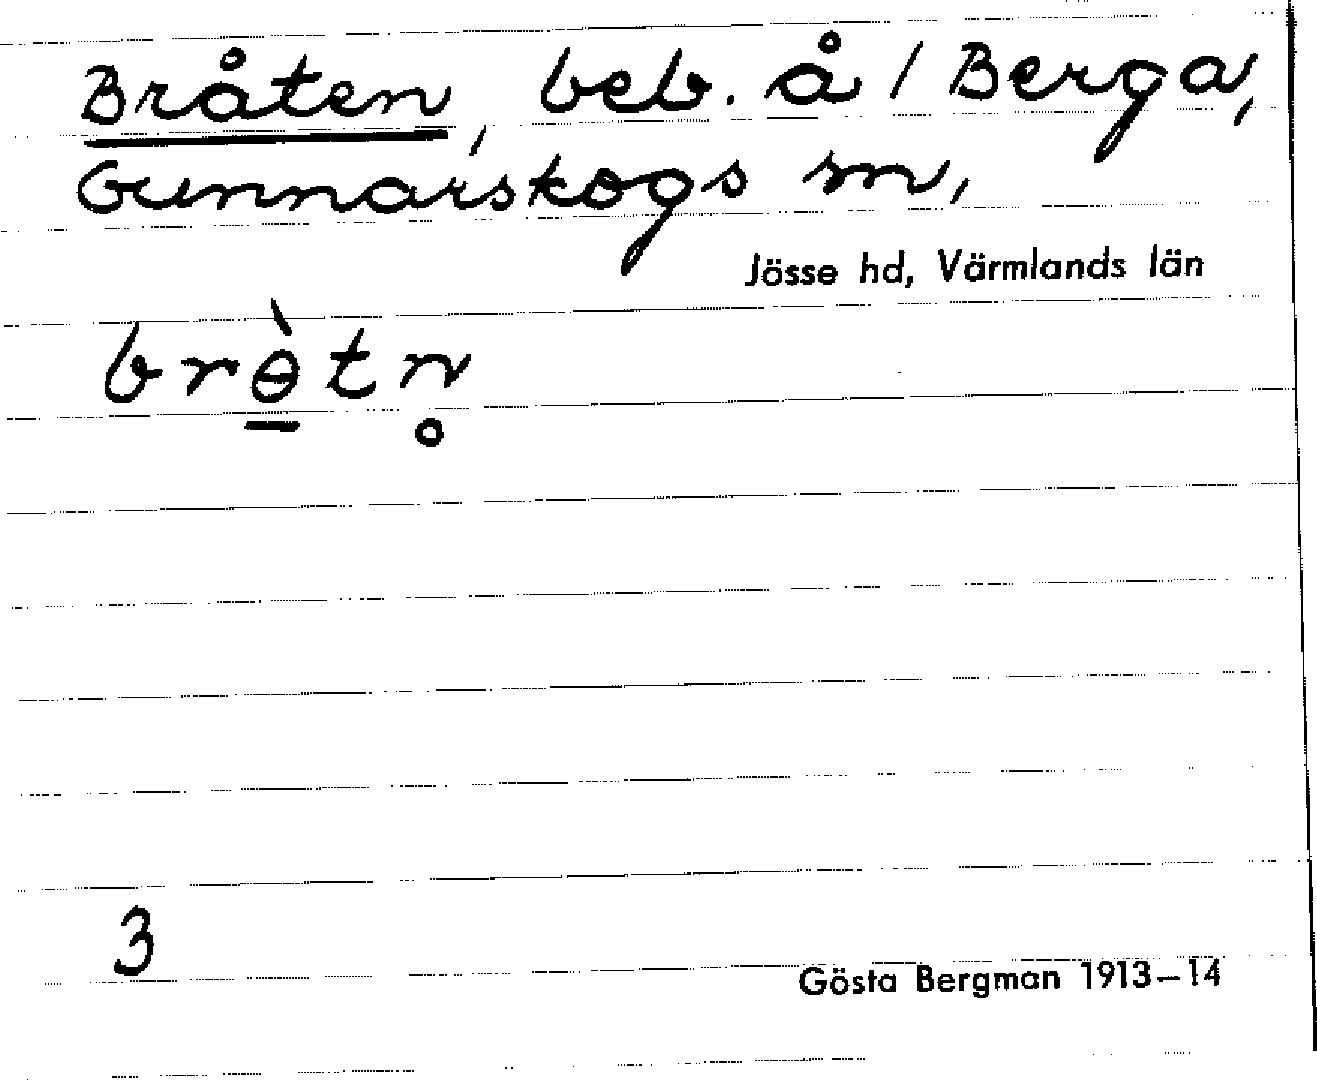 Bråten, beb. å / Berga,
Gunnarskogs sn,
Jösse hd, Värmlands län
brɵ̱̀tn̥
3
Gösta Bergman 1913–14